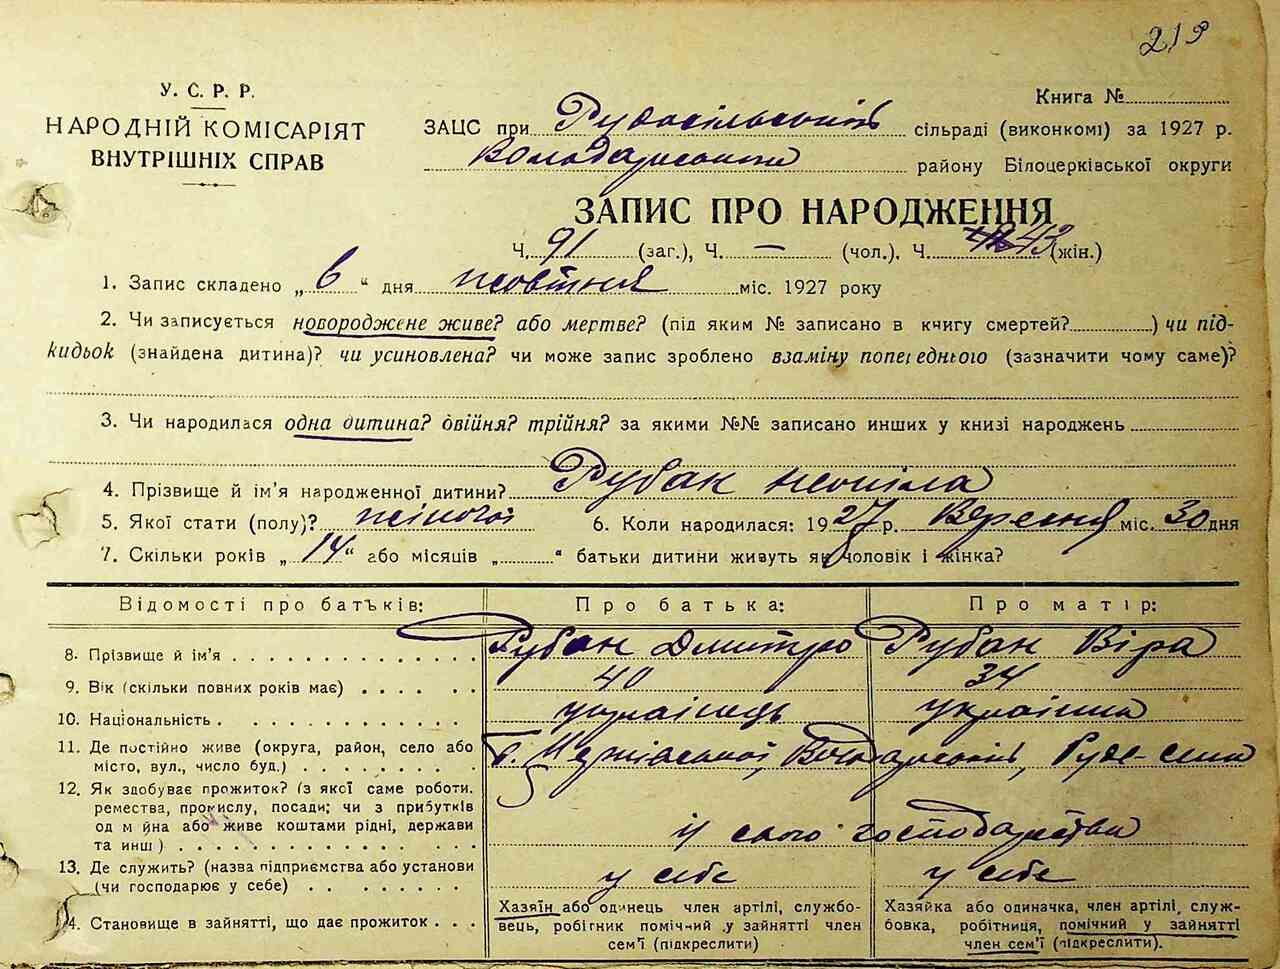 219
У. С. Р. Р.
НАРОДНІЙ КОМІСАРІЯТ
ВНУТРІШНІХ СПРАВ
Книга №
ЗАЦС при Рудосільський сільраді (виконкомі) за 1927 р.
Володарського району Білоцерківської округи
ЗАПИС ПРО НАРОДЖЕННЯ
Ч. 91 (заг.), Ч. — (чол.). Ч. 43 (жін.)
1. Запис складено „ 6 “ дня жовтня міс. 1927 року
2. Чи записується новороджене живе? або мертве? (під яким № записано в книгу смертей? ) чи під-
кидьок (знайдена дитина)? чи усиновлена? чи може запис зроблено взаміну попереднього (зазначити чому саме)?
3. Чи народилася одна дитина? двійня? трійня? за якими №№ записано инших у книзі народжень
4. Прізвище й ім'я народженної дитини? Рубан
5. Якої стати (полу)? жіночої 6. Коли народилася: 1927 р. Вересня міс. 30 дня
7. Скільки років „ 14 “ або місяців „ “ батьки дитини живуть як чоловік і жінка?
Відомості про батьків: Про батька: Про матір:
8. Прізвище й ім'я Рубан Дмитро Рубан Віра
9. Вік (скільки повних років має) 40 34
10. Національність українець українка
11. Де постійно живе (округа, район, село або
місто, вул., число буд.) Руде-село
12. Як здобуває прожиток? (з якої саме роботи.
ремества, промислу, посади; чи з прибутків
од майна або живе коштами рідні, держави
та инш) із свого господарства
13. Де служить? (назва підприємства або установи
(чи господарює у себе) у себе у себе
14. Становище в зайнятті, що дає прожиток
Хазяїн або одинець член артілі, службо-
вець, робітник помічний у зайнятті член
сем'ї (підкреслити)
Хазяйка або одиначка, член артілі, служ-
бовка, робітниця, помічний у зайнятті
член сем'ї (підкреслити).